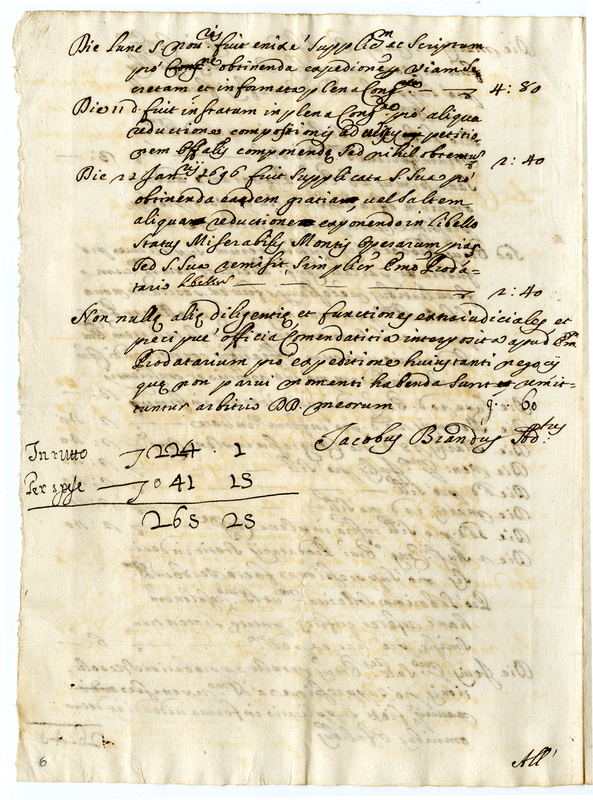 Die Lune 5 nou.ris fuit enixé Supplic.m et Scriptum
pró obtinenda expeditione per viam Se
cretam et informata plena Cong.ne 4: 80
Die 11 d. fuit instatum in plena Cong.ne pró aliqua
reductione compositionis ad petitio,
nem offitialis componendę sed nihil obtentum 2: 40
Die 22 Jan.rij 1696 fuit Supplicata S. Sua pró
obtinenda eadem gratia, uel saltem
aliqua reductione exponendo in libello
Status Miserabilis Montis Operarum pias
Sed S. Sua remisit simplicr Emo Prodá-
tario libellu 2: 40
Non nullę alię diligentię et functiones extrajudiciales et
pręcipué officia Comendatitia interposita apud Em
Prodatarium pro expeditione huius tanti negocij
quę non parui momenti habenda sunt et remit-
tuntur arbitrio DD. meorum 9: 60
Jacobus Brandus
In tutto 224 . 1
Per spese 041 15
265 25
6
All'